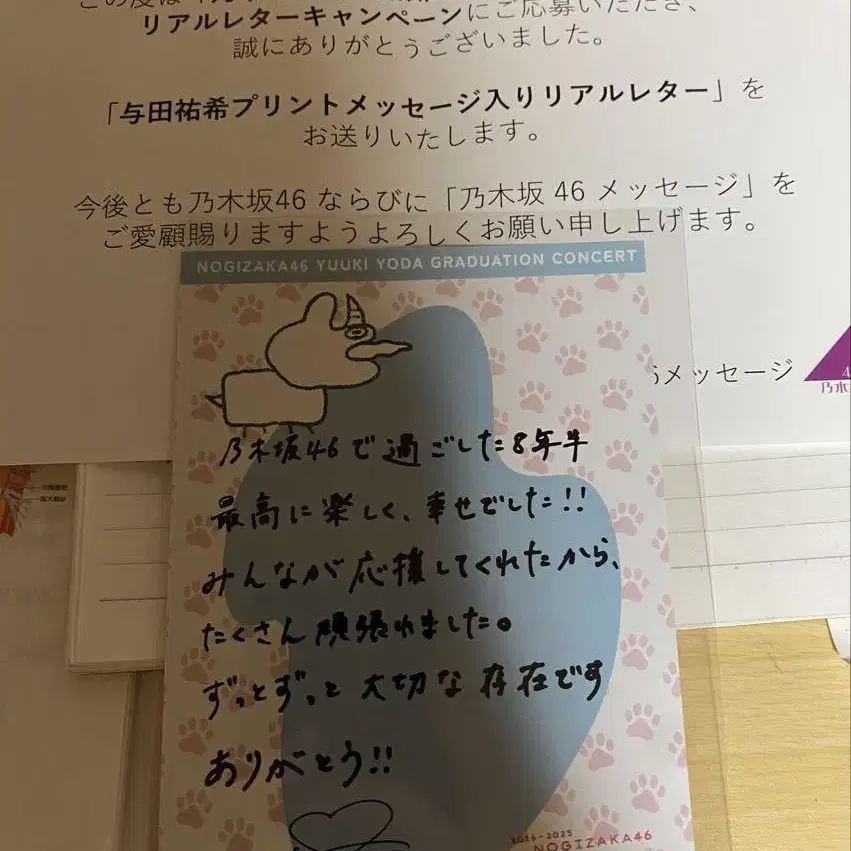 リアルレターキャンペーンにご応募いただき、
誠にありがとうございました。
「与田祐希プリントメッセージ入りリアルレター」を
お送りいたします。
今後とも乃木坂46 ならびに「乃木坂 46 メッセージ」を
ご愛顧賜りますようよろしくお願い申し上げます。
メッセージ
NOGIZAKA46 YUUKI YODA GRADUATION CONCERT
乃木坂46で過ごした8年半
最高に楽しく、幸せでした!!
みんなが応援してくれたから、
たくさん頑張れました。
ずっとずっと大切な存在です
ありがとう!!
2016-2025
NOGIZAKA46